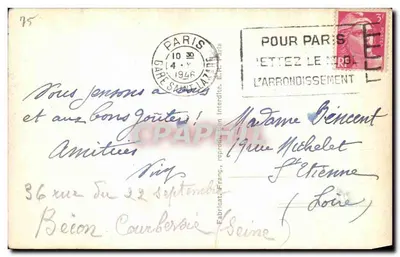 75
PARIS
10 30
4
1946
GARE ST LAZARE
POUR PARIS
METTEZ LE N° DE
L'ARRONDISSEMENT
3F
RF
Vous pensons à vous
et aux bons goûters !
Amitiés
36 rue du 22 septembre
Bécon Courbevoie (Seine)
Madame
17 rue Michelet
St Etienne
(Loire)
Fabricat. Franç. reproduction interdite.
CPARAMA